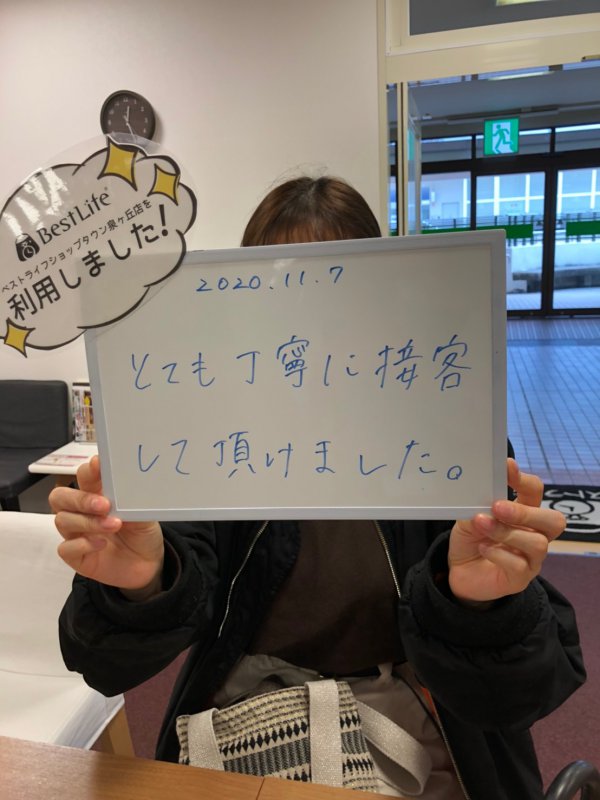 BestLife
ベストライフショップタウン泉ヶ丘店を
利用しました!
2020.11.7
とても丁寧に接客
して頂けました。